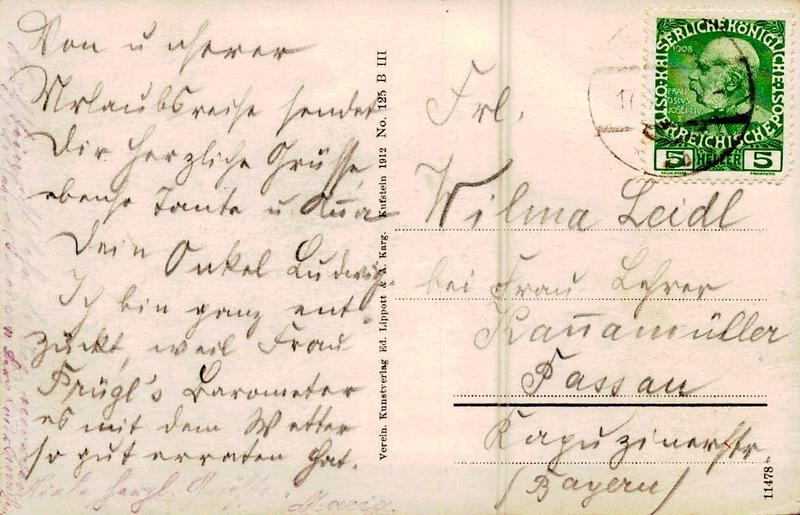 Von unserer
Urlaubsreise sendet
Dir herzliche Grüsse,
ebenso Tante u Anna
Dein Onkel Ludwig.
Ich bin ganz ent-
zückt, weil Frau
Prügl's Barometer
es mit dem Wetter
so gut erraten hat.
Viele herzl. Grüße
Maria.
Verein. Kunstverlag Ed. Lippott & A. Karg. Kufstein 1912 No. 125 B III
KAISERLICHE KÖNIGLICHE
ÖSTERREICHISCHE POST
1908
FRAN
CISCVS
JOSEPH
I
5 HELLER 5
17
Frl.
Wilma Leidl
bei Frau Lehrer
Kannamüller
Passau
Kapuzinerstr.
(Bayern)
11478